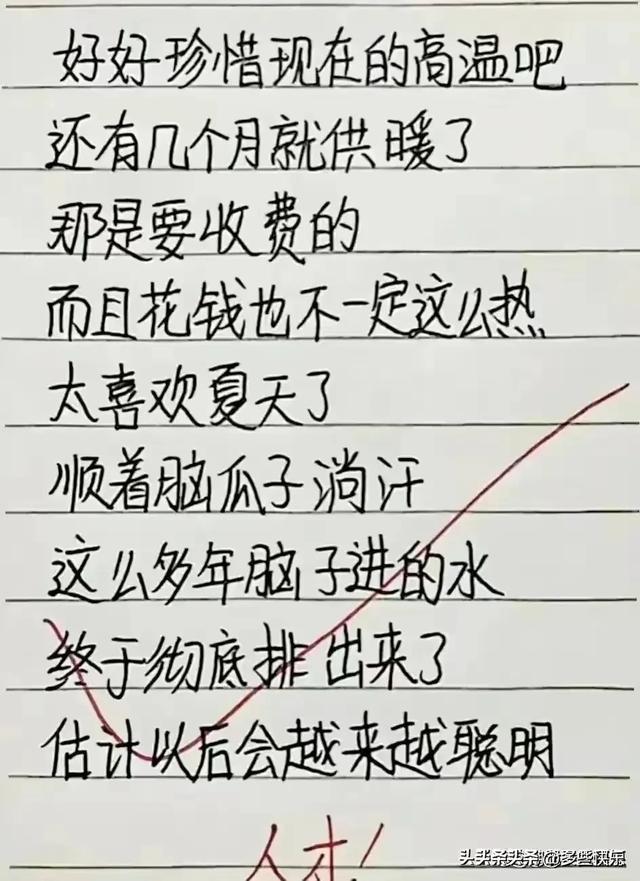 好好珍惜现在的高温吧
还有几个月就供暖了
那是要收费的
而且花钱也不一定这么热
太喜欢夏天了
顺着脑瓜子淌汗
这么多年脑子进的水
终于彻底排出来了
估计以后会越来越聪明
人才!